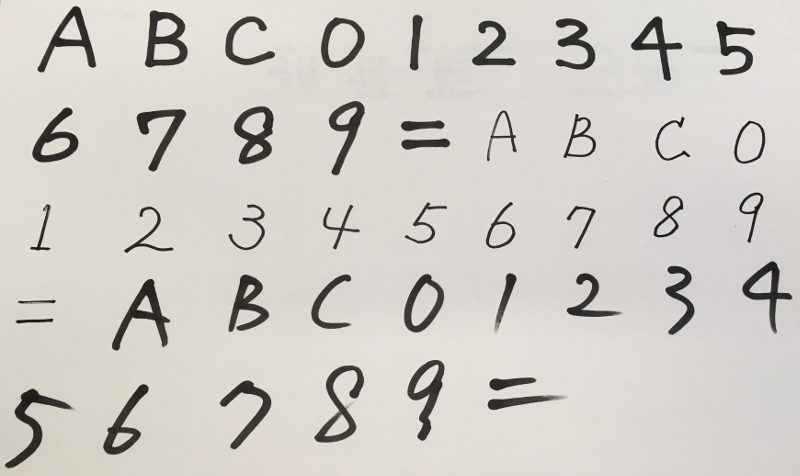 A B C 0 1 2 3 4 5
6 7 8 9 = A B C 0
1 2 3 4 5 6 7 8 9
= A B C 0 1 2 3 4
5 6 7 8 9 =